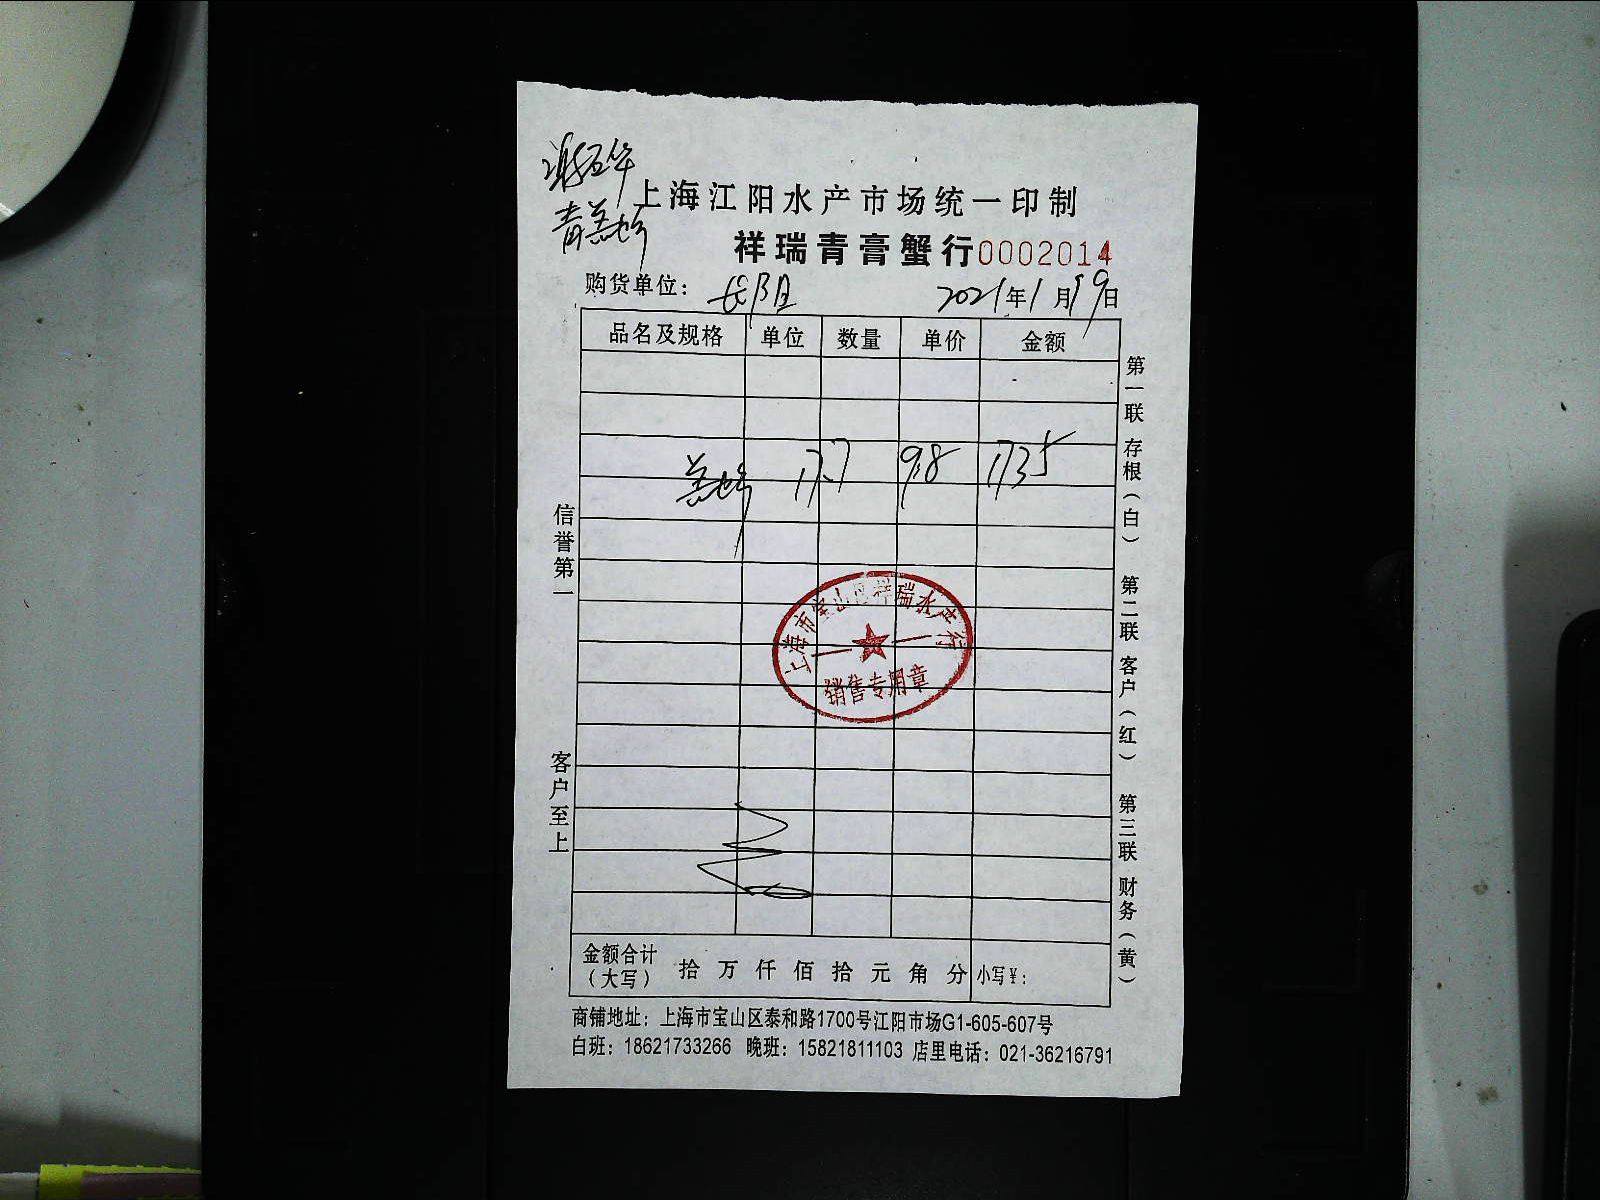 上海江阳水产市场统一印制
祥瑞青膏蟹行0002014
购货单位： 长阳 2021年1月19日
品名及规格 单位 数量 单价 金额
17.7 98 1735
上海市宝山区祥瑞水产行
销售专用章
信誉第一
客户至上
第一联 存根（白） 第二联 客户（红） 第三联 财务（黄）
金额合计
（大写） 拾 万 仟 佰 拾 元 角 分 小写￥：
商铺地址：上海市宝山区泰和路1700号江阳市场G1-605-607号
白班：18621733266 晚班：15821811103 店里电话：021-36216791